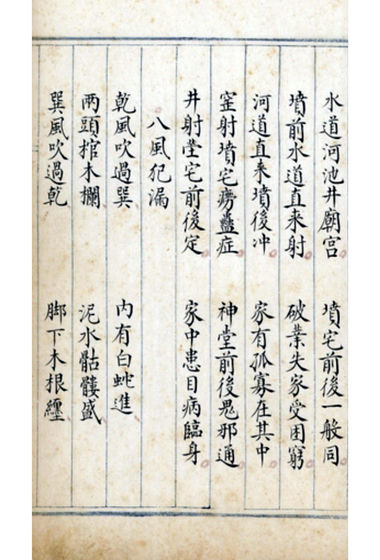 水道河池井廟宮　墳宅前後一般同
墳前水道直来射　破業失家受困窮
河道直来墳後冲　家有孤寡在其中
窑射墳宅癆蠱症　神堂前後鬼邪通
井射堂宅前後定　家中患目病臨身
八風犯漏
乾風吹過巽　内有白蛇進
兩頭棺木攔　泥水骷髏盛
巽風吹過乾　脚下木根纏